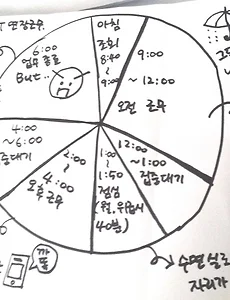 연장근무
6:00
업무 종료
But..
아침
조회
8:40
~
9:00
9:00
~ 12:00
오전 근무
12:00
~ 1:00
집중대기
1:00
~
1:50
점심
(월, 위클시
40분)
2:00
~
4:00
오후 근무
4:00
~ 6:00
집중대기
까
똑
수면실로
자리가